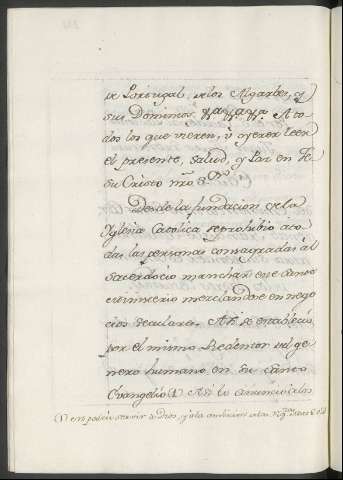 de Portugal, de los Algarbes, y
sus Dominios, &a &a &a. A to-
dos los que vieren, ù oyeren leer
el presente, salud, y Paz en Je-
su Cristo nrõ S.or
Desde la fundacion de la
Iglesia Catolica se prohibio a to-
das las personas consagradas al
sacerdocio manchar ese santo
ministerio mezclandose en nego-
cios seculares. Asi se establecio
por el mismo Redentor del ge-
nero humano en su santo
Evangelio (1) Asi lo anunció a los
(1) en podeis servir a Dios, y a la